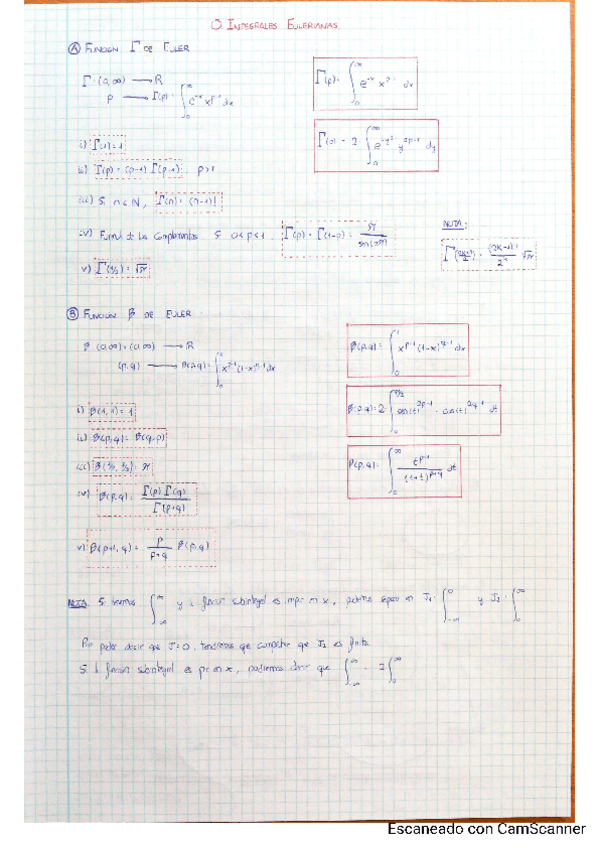 0. INTEGRALES EULERIANAS
Ⓐ FUNCIÓN Γ DE EULER
Γ: (0,∞) → R
p → Γ(p) = ∫₀^∞ e^-x x^p-1 dx
Γ(p) = ∫₀^∞ e^-x x^p-1 dx
Γ(p) = 2 ∫₀^∞ e^-y² y^2p-1 dy
i) Γ(1) = 1
ii) Γ(p) = (p-1) Γ(p-1), p>1
iii) Si n ∈ N, Γ(n) = (n-1)!
iv) Fórmula de los Complementos. Si 0<p<1, Γ(p) · Γ(1-p) = π / sen(pπ)
NOTA:
√π
v) Γ(1/2) = √π
Ⓑ FUNCIÓN β DE EULER
β: (0,∞)×(0,∞) → R
(p,q) → β(p,q) = ∫₀¹ x^p-1 (1-x)^q-1 dx
β(p,q) = ∫₀¹ x^p-1 (1-x)^q-1 dx
β(p,q) = 2 ∫₀^π/2 sen(t)^2p-1 · cos(t)^2q-1 dt
β(p,q) = ∫₀^∞ t^p-1 / (1+t)^p+q dt
i) β(1,1) = 1
ii) β(p,q) = β(q,p)
iii) β(1/2, 1/2) = π
iv) β(p,q) = Γ(p) Γ(q) / Γ(p+q)
v) β(p+1,q) = p / p+q β(p,q)
NOTA: Si tenemos ∫_-∞^∞ y la función subintegral es impar en x, podemos separar en J₁ = ∫_-∞^0 y J₂ = ∫₀^∞
Para poder decir que J=0, tendremos que comprobar que J₂ es finita
Si la función subintegral es par en x, podremos decir que ∫_-∞^∞ = 2 ∫₀^∞
Escaneado con CamScanner